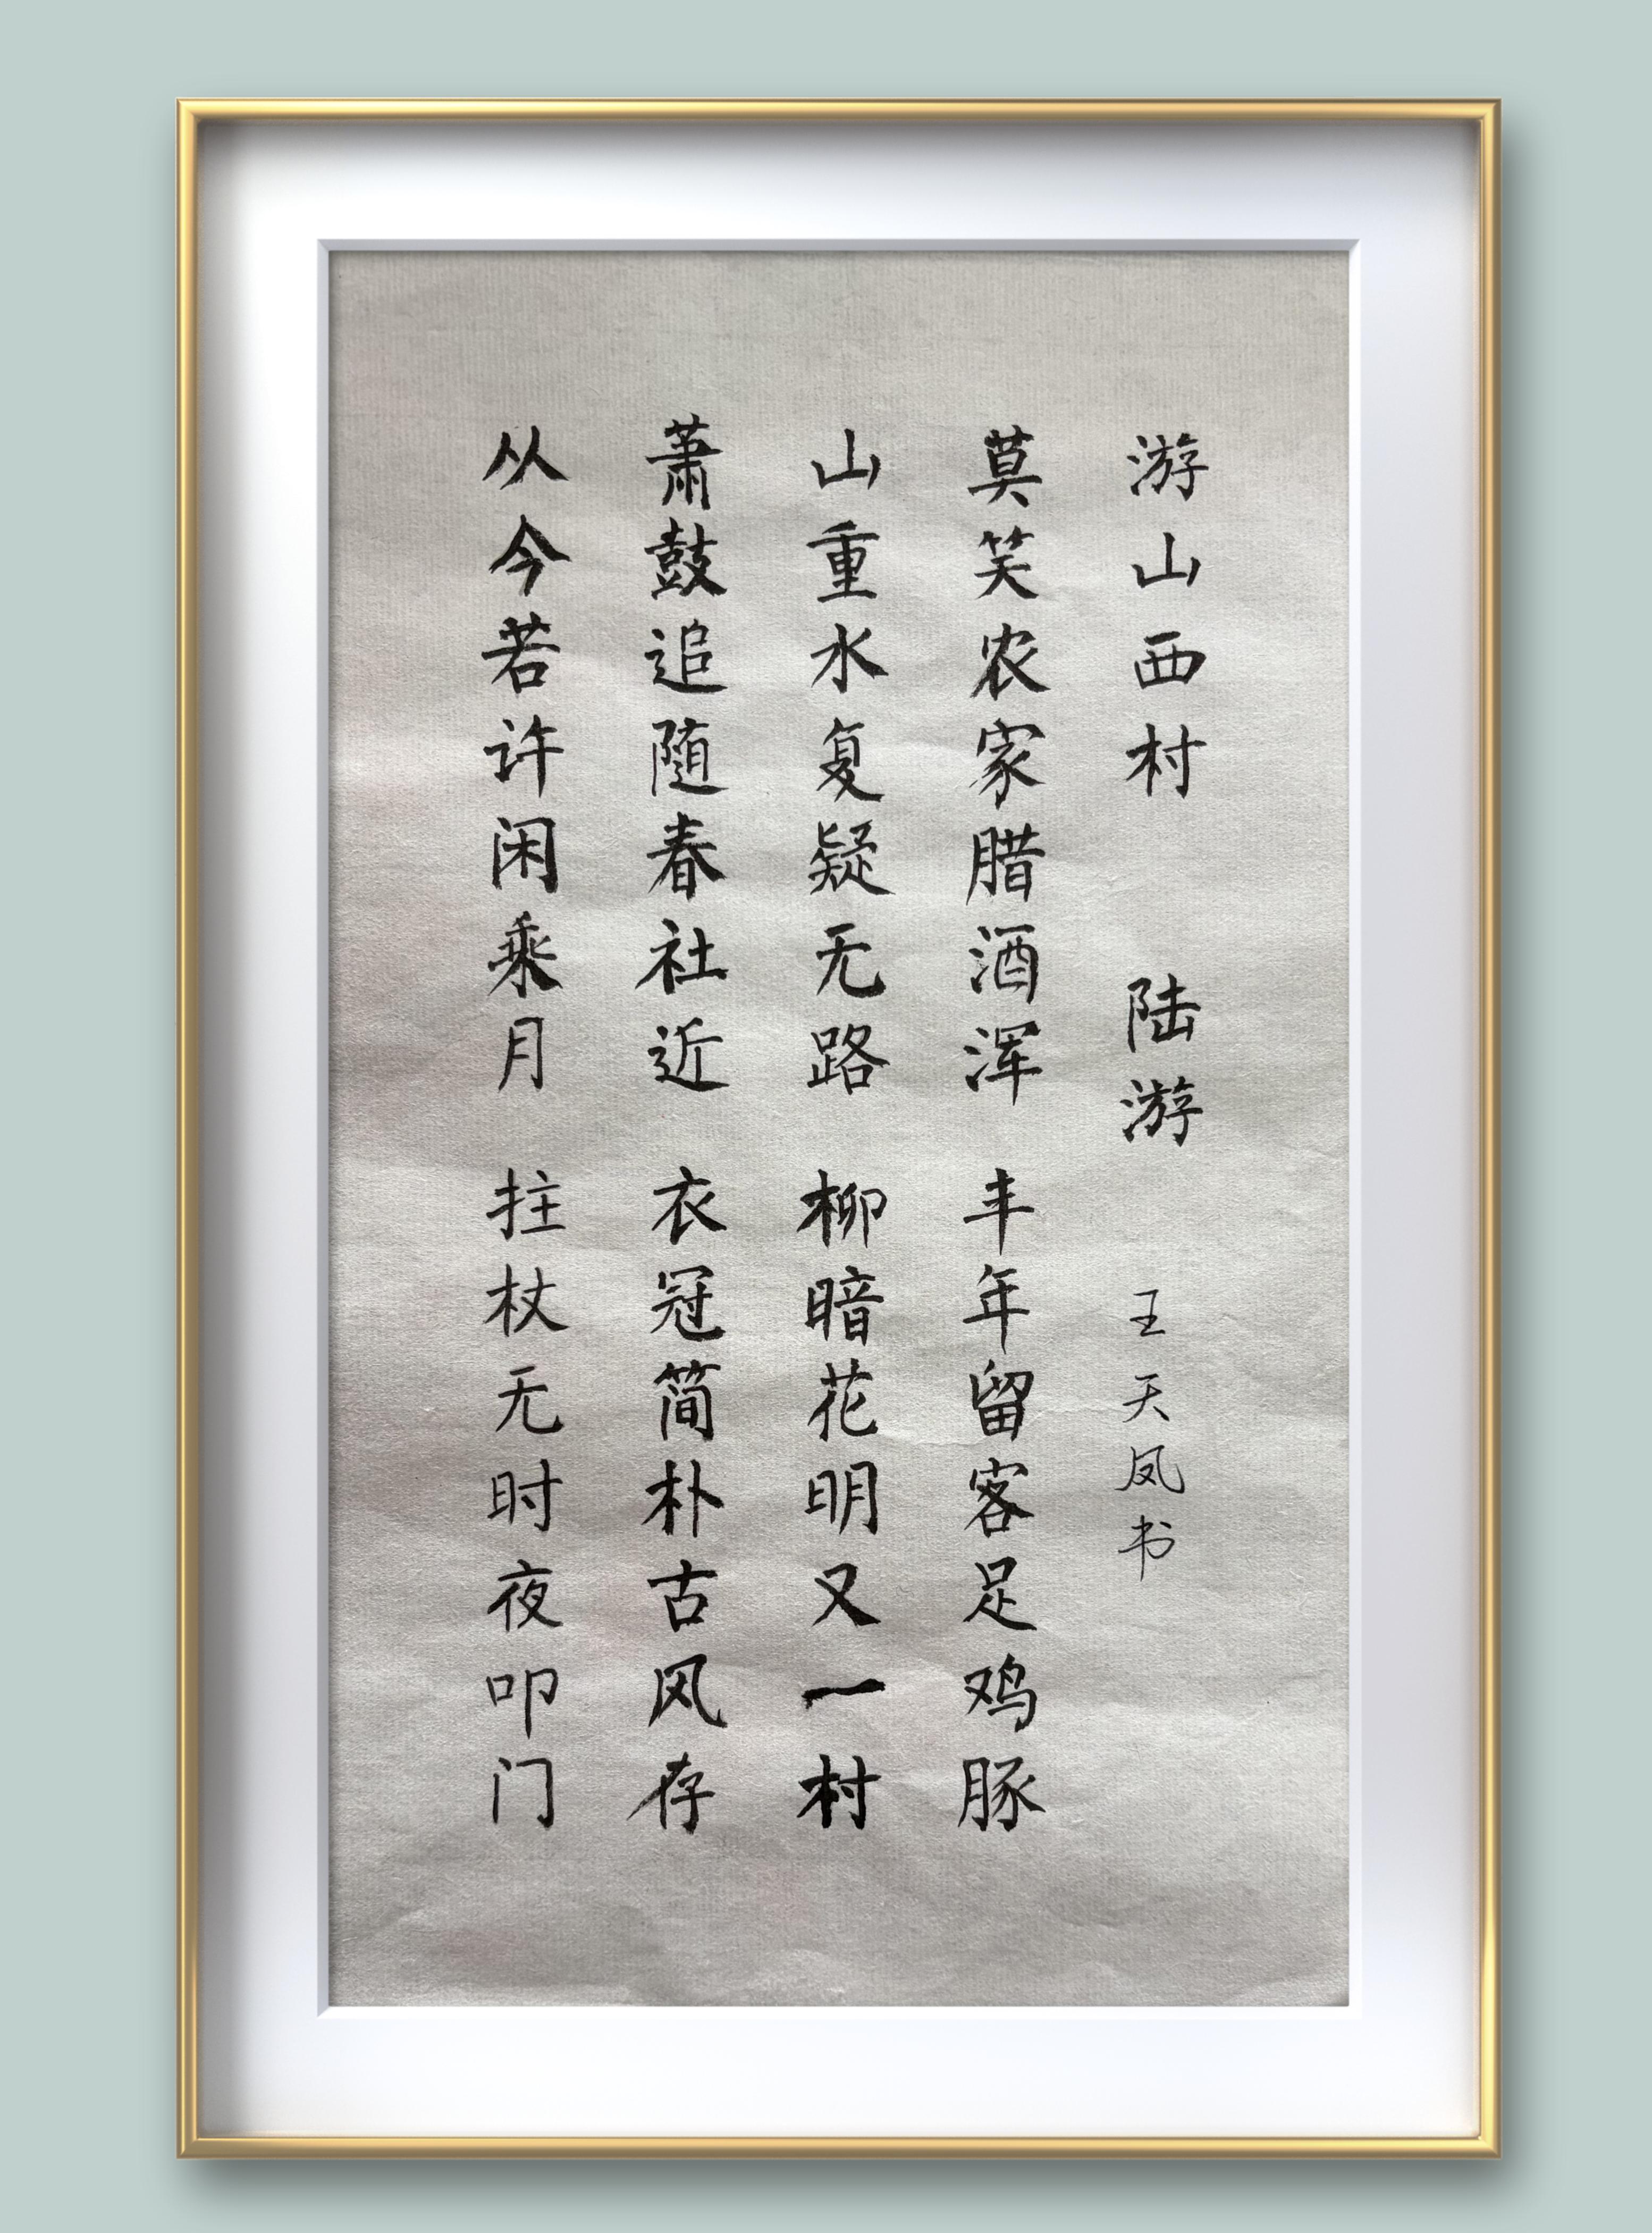 游山西村 陆游 王天凤书
莫笑农家腊酒浑 丰年留客足鸡豚
山重水复疑无路 柳暗花明又一村
萧鼓追随春社近 衣冠简朴古风存
从今若许闲乘月 拄杖无时夜叩门